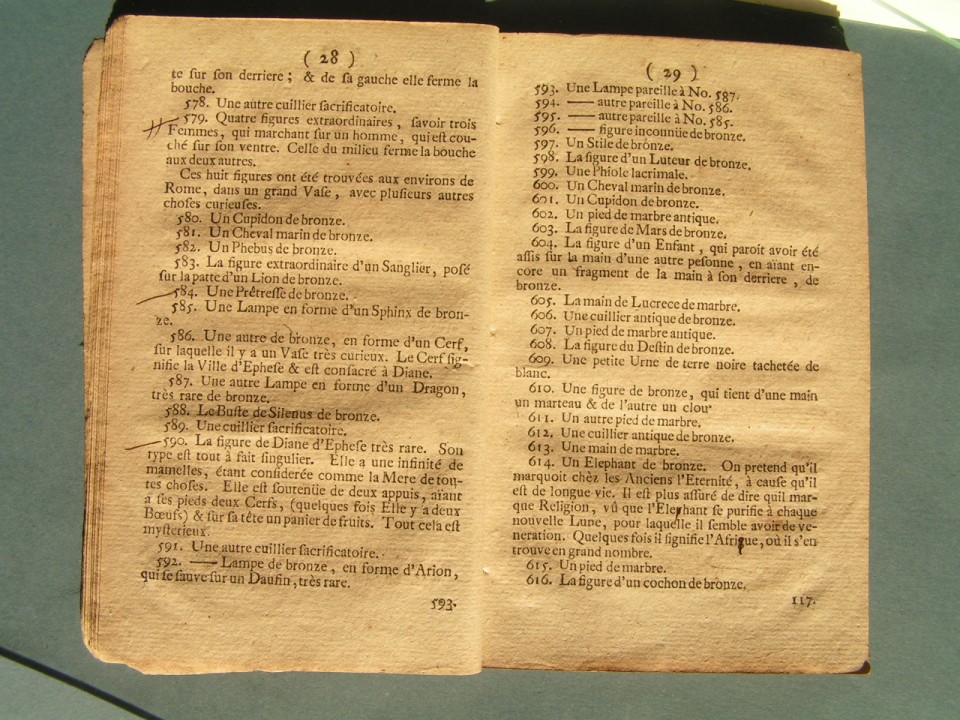 ( 28 )
te ſur ſon derriere ; & de ſa gauche elle ferme la
bouche.
578. Une autre cuillier ſacrificatoire.
579. Quatre figures extraordinaires , ſavoir trois
Femmes, qui marchant ſur un homme, qui eſt cou-
ché ſur ſon ventre. Celle du milieu ferme la bouche
aux deux autres.
Ces huit figures ont été trouvées aux environs de
Rome, dans un grand Vaſe , avec pluſieurs autres
choſes curieuſes.
580. Un Cupidon de bronze.
581. Un Cheval marin de bronze.
582. Un Phebus de bronze.
583. La figure extraordinaire d'un Sanglier, poſé
ſur la patte d'un Lion de bronze.
584. Une Prêtreſſe de bronze.
585. Une Lampe en forme d'un Sphinx de bron-
ze.
586. Une autre de bronze, en forme d'un Cerf,
ſur laquelle il y a un Vaſe très curieux. Le Cerf ſig-
nifie la Ville d'Epheſe & eſt conſacré à Diane.
587. Une autre Lampe en forme d'un Dragon,
très rare de bronze.
588. Le Buſte de Silenus de bronze.
589. Une cuillier ſacrificatoire.
590. La figure de Diane d'Epheſe très rare. Son
type eſt tout à fait ſingulier. Elle a une infinité de
mamelles, étant conſiderée comme la Mere de tou-
tes choſes. Elle eſt ſoutenüe de deux appuis, aïant
a ſes pieds deux Cerfs, (quelques fois Elle y a deux
Bœufs) & ſur ſa tête un panier de fruits. Tout cela eſt
myſterieux.
591. Une autre cuillier ſacrificatoire.
592. —— Lampe de bronze , en forme d'Arion,
qui ſe ſauve ſur un Daufin, très rare.
593.
( 29 )
593. Une Lampe pareille à No. 587.
594. —— autre pareille à No. 586.
595. —— autre pareille à No. 585.
596. —— figure inconnüe de bronze.
597. Un Stile de brônze.
598. La figure d'un Luteur de bronze.
599. Une Phiole lacrimale.
600. Un Cheval marin de bronze.
601. Un Cupidon de bronze.
602. Un pied de marbre antique.
603. La figure de Mars de bronze.
604. La figure d'un Enfant , qui paroit avoir été
aſſis ſur la main d'une autre peſonne , en aïant en-
core un fragment de la main à ſon derriere , de
bronze.
605. La main de Lucrece de marbre.
606. Une cuillier antique de bronze.
607. Un pied de marbre antique.
608. La figure du Deſtin de bronze.
609. Une petite Urne de terre noire tachetée de
blanc.
610. Une figure de bronze, qui tient d'une main
un marteau & de l'autre un clou
611. Un autre pied de marbre.
612. Une cuillier antique de bronze.
613. Une main de marbre.
614. Un Elephant de bronze. On pretend qu'il
marquoit chèz les Anciens l'Eternité, à cauſe qu'il
eſt de longue vie. Il eſt plus aſſuré de dire quil mar-
que Religion, vû que l'Elephant ſe purifie à chaque
nouvelle Lune, pour laquelle il ſemble avoir de ve-
neration. Quelques fois il ſignifie l'Afrique, où il s'en
trouve en grand nombre.
615. Un pied de marbre.
616. La figure d'un cochon de bronze.
117.